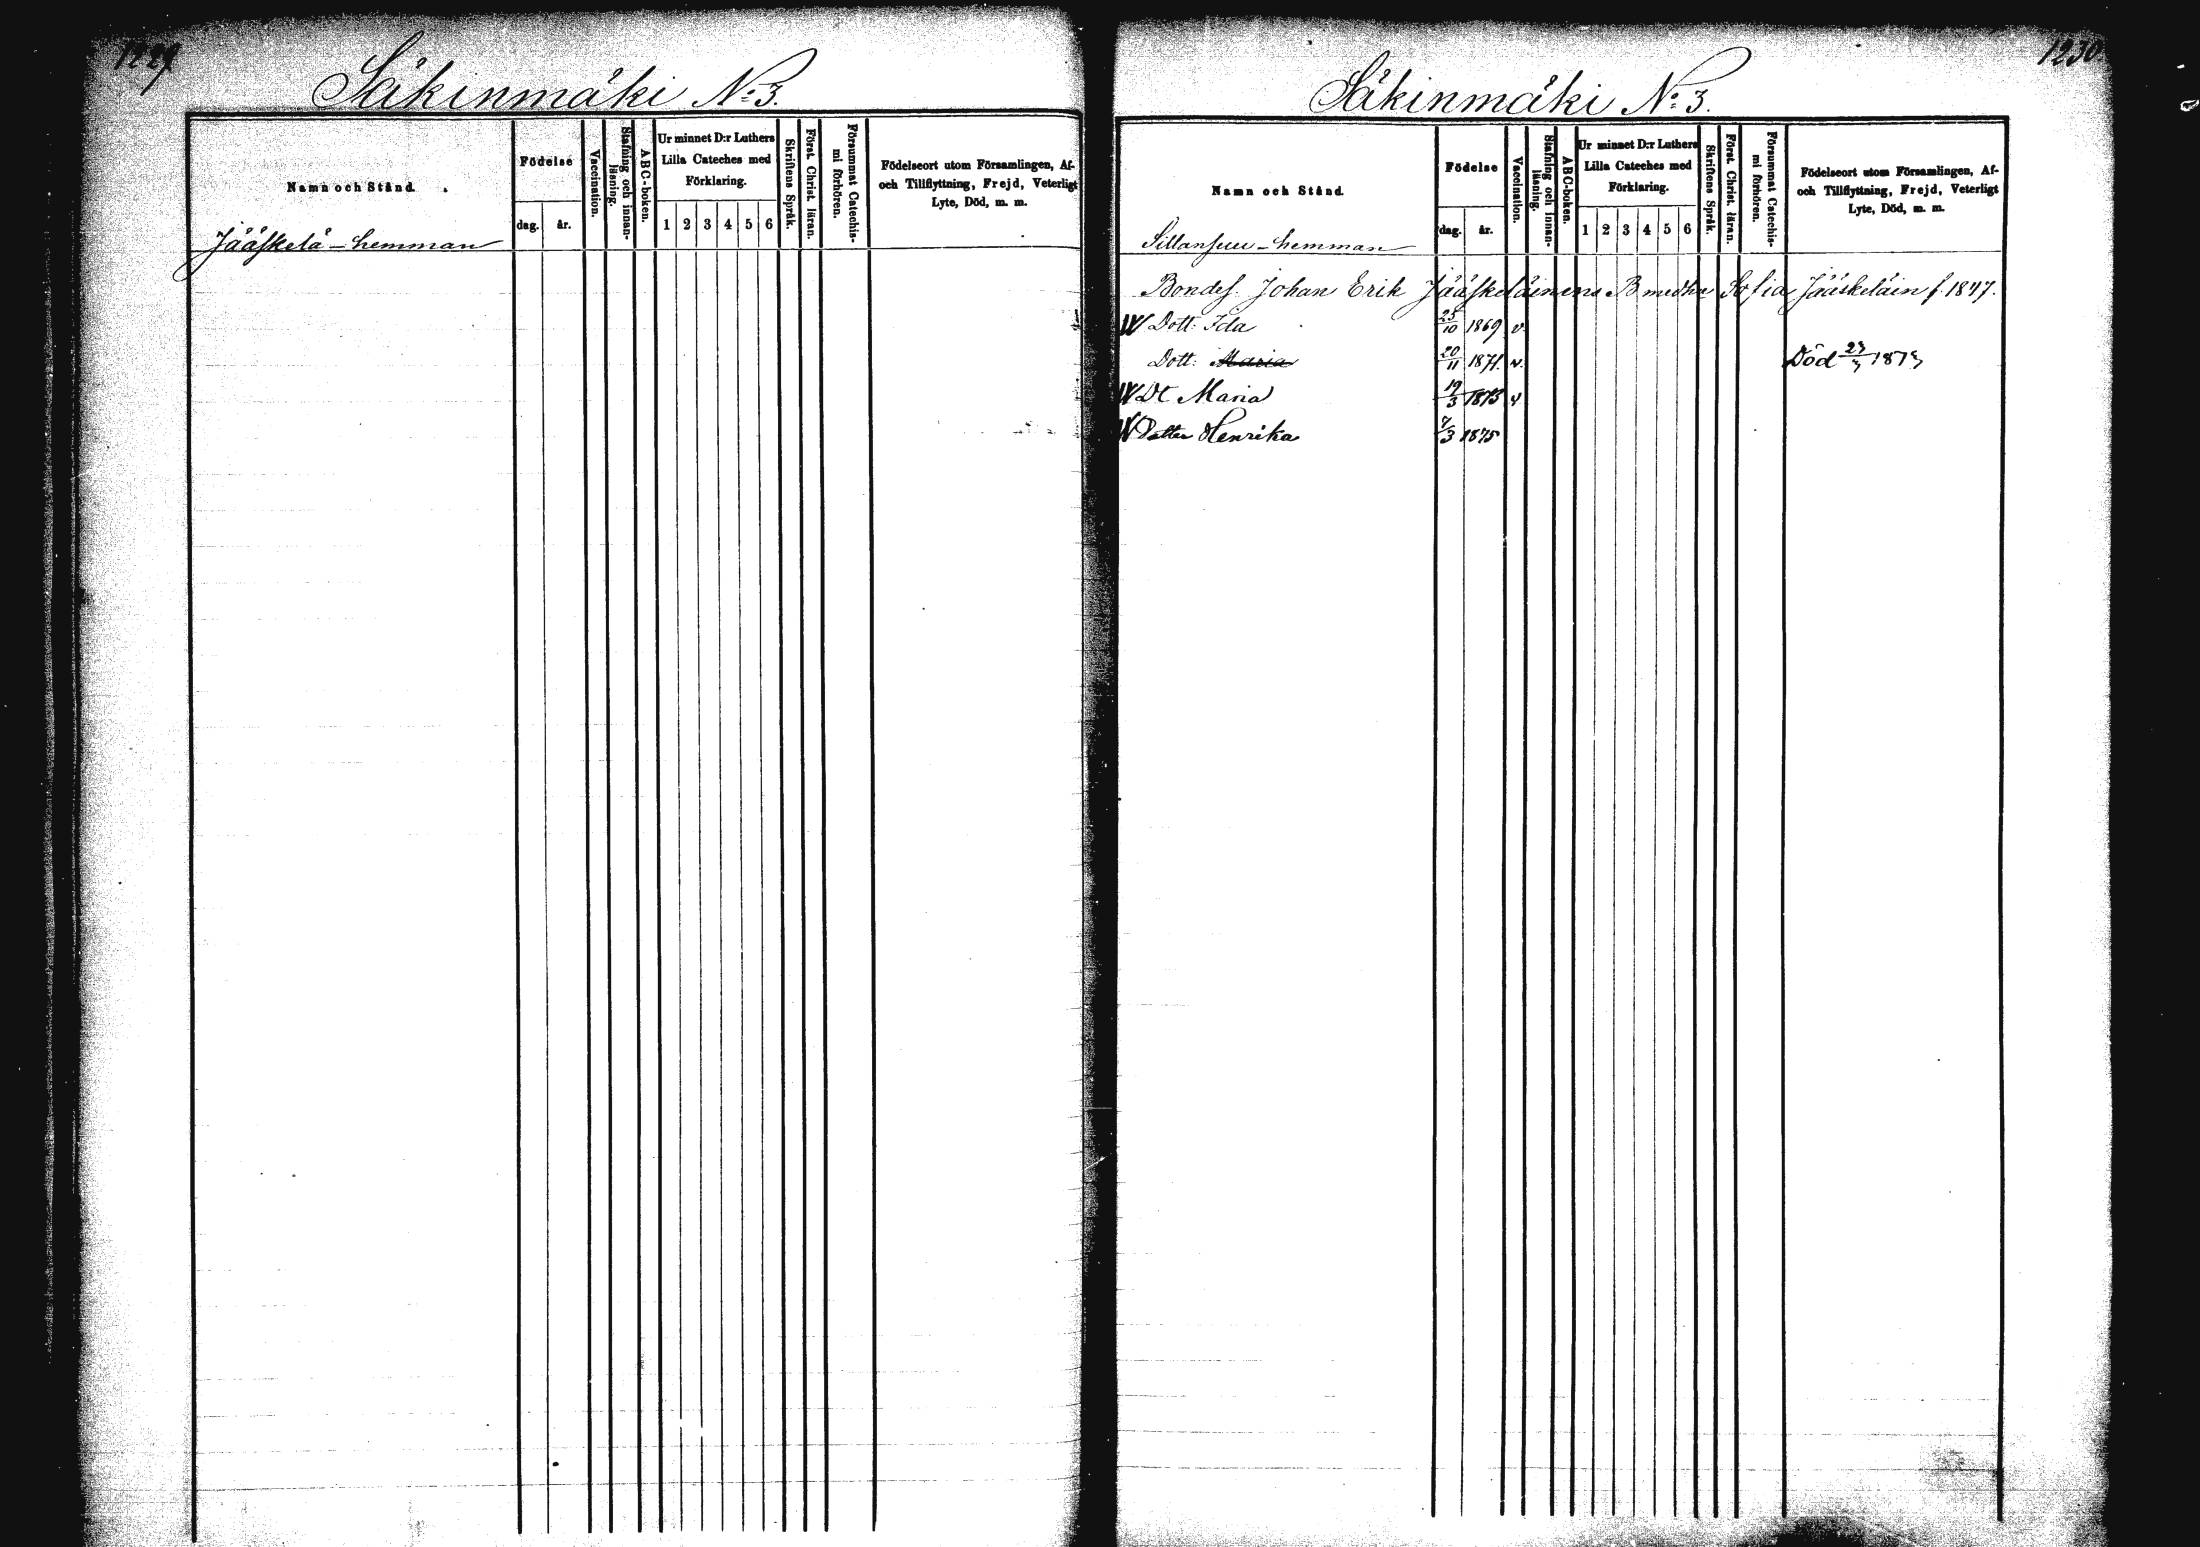 1229
Säkinmäki No: 3.
Namn och Stånd.
Födelse
dag. år.
Vaccination.
Stafning och innan-
läsning.
ABC-boken.
Ur minnet D:r Luthers
Lilla Cateches med
Förklaring.
1 2 3 4 5 6
Skriftens Språk.
Först. Christ. läran.
Försummat Catechis-
mi förhören.
Födelseort utom Församlingen, Af-
och Tillflyttning, Frejd, Veterligt
Lyte, Död, m. m.
Jääskelä - hemman
1230
Säkinmäki No: 3.
Namn och Stånd
Födelse
dag. år.
Vaccination.
Stafning och innan-
läsning.
ABC-boken.
Ur minnet D:r Luthers
Lilla Cateches med
Förklaring.
1 2 3 4 5 6
Skriftens Språk.
Först. Christ. läran.
Försummat Catechis-
mi förhören.
Födelseort utom Församlingen, Af-
och Tillflyttning, Frejd, Veterligt
Lyte, Död, m. m.
Sillansuu - hemman
Bondes. Johan Erik Jääskeläinens B med hu Sofia Jääskeläin f. 1847.
Dott: Ida 25/10 1869 v.
Dott: Maria 20/11 1871. v. Död 1873
Dt Maria 19/3 1873 v
Dotter Henrika 7/3 1875